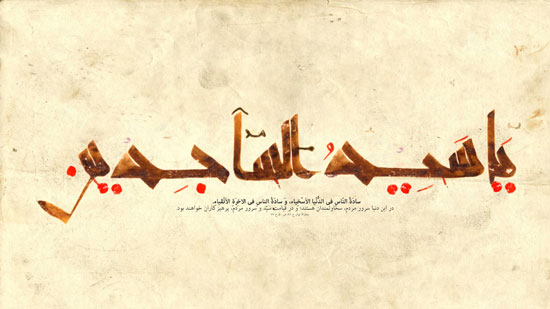 یا سید الساجدین
سادَةُ النّاسِ فِی الدُّنْیا الأسْخِیاء، وَ سادَةُ الناسِ فی الاخِرَةِ الأتْقیاء.
در این دنیا سرور مردم، سخاوتمندان هستند؛ و در قیامت سیّد و سرور مردم، پرهیزکاران خواهند بود.